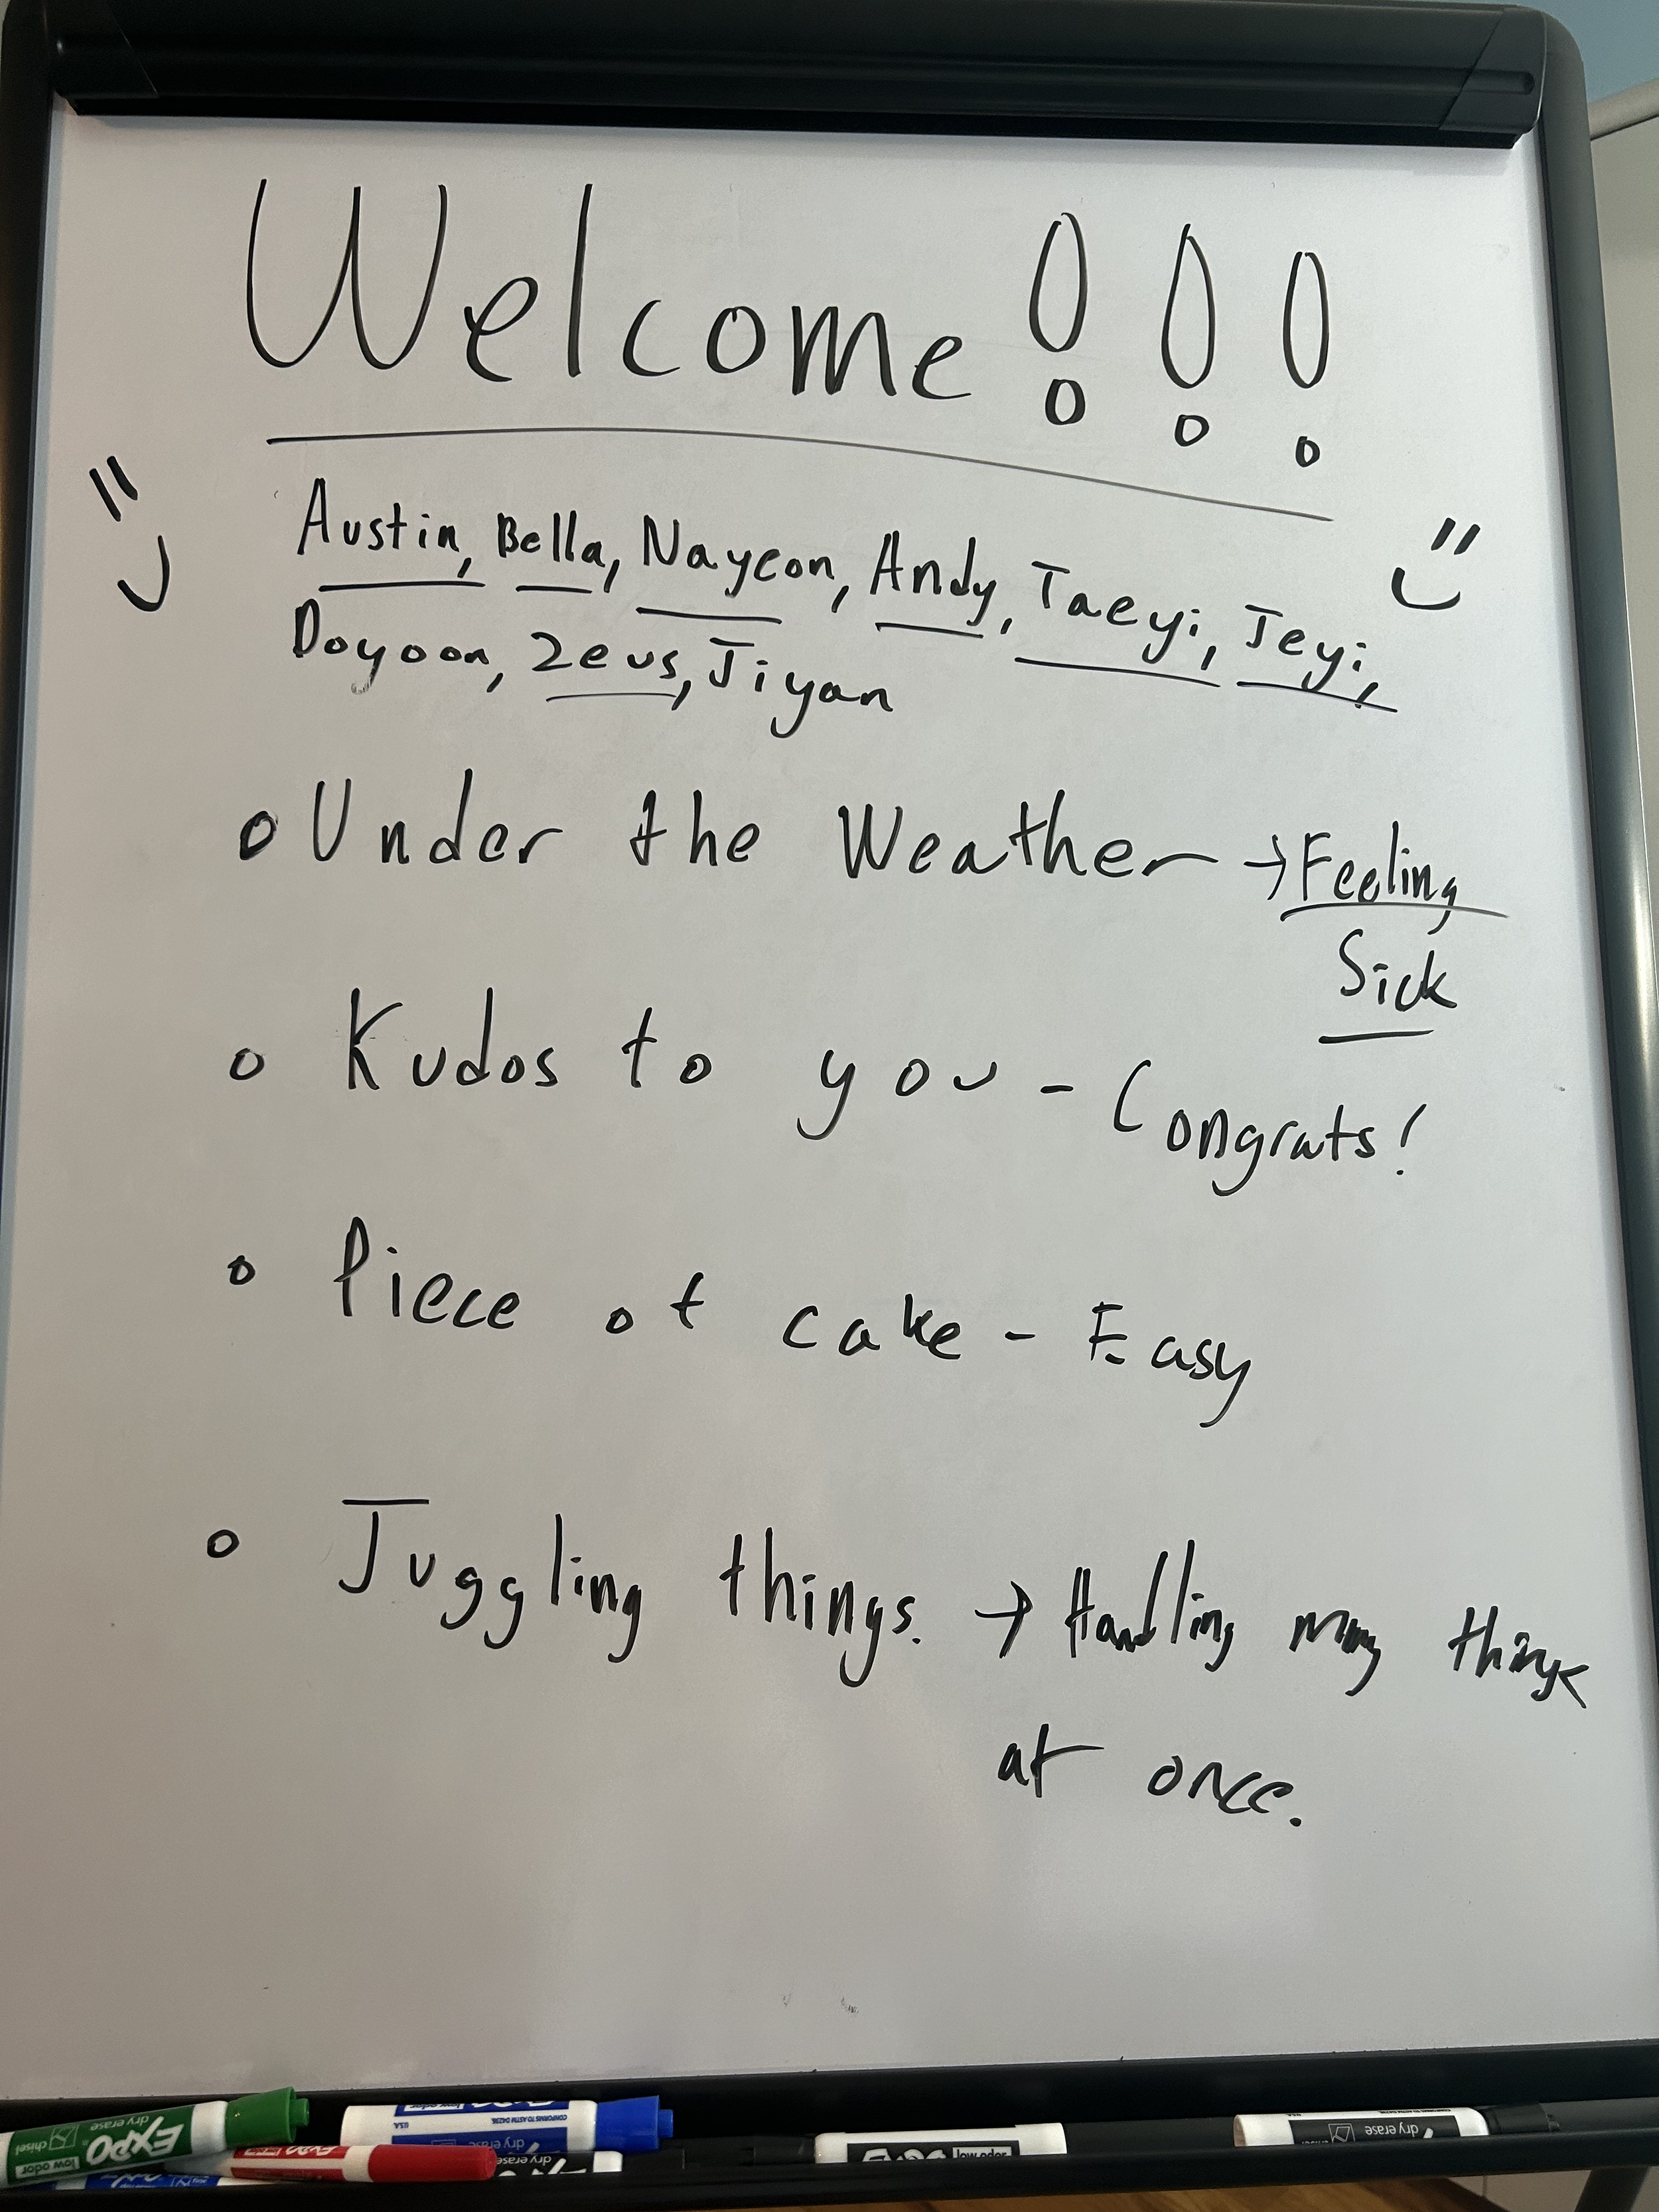 Welcome!!!
Austin, Bella, Nayeon, Andy, Taeyi, Jeyi,
Doyoon, Zeus, Jiyan
Under the Weather → Feeling
Sick
Kudos to you - Congrats!
Piece of cake - Easy
Juggling things. → Handling many things
at once.
EXPO
dry erase
chisel
low odor
EXPO
dry erase
CONFORMS TO ASTM D4236
U.S.A.
EXPO
dry erase
EXPO
low odor
dry erase